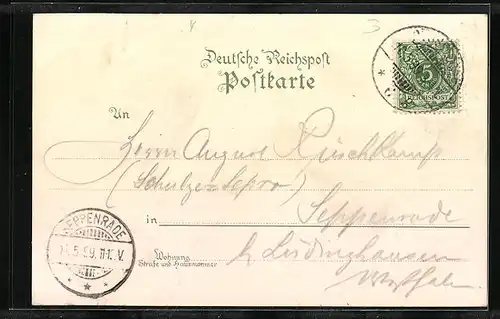 Deutsche Reichspost
Postkarte
5
REICHSPOST
An
Herrn August Rüschkamp
(Schulze
in Seppenrade
b/ Lüdinghausen
Westfalen
Wohnung
Strasse und Hausnummer
SEPPENRADE
5.99. 11-12 V.